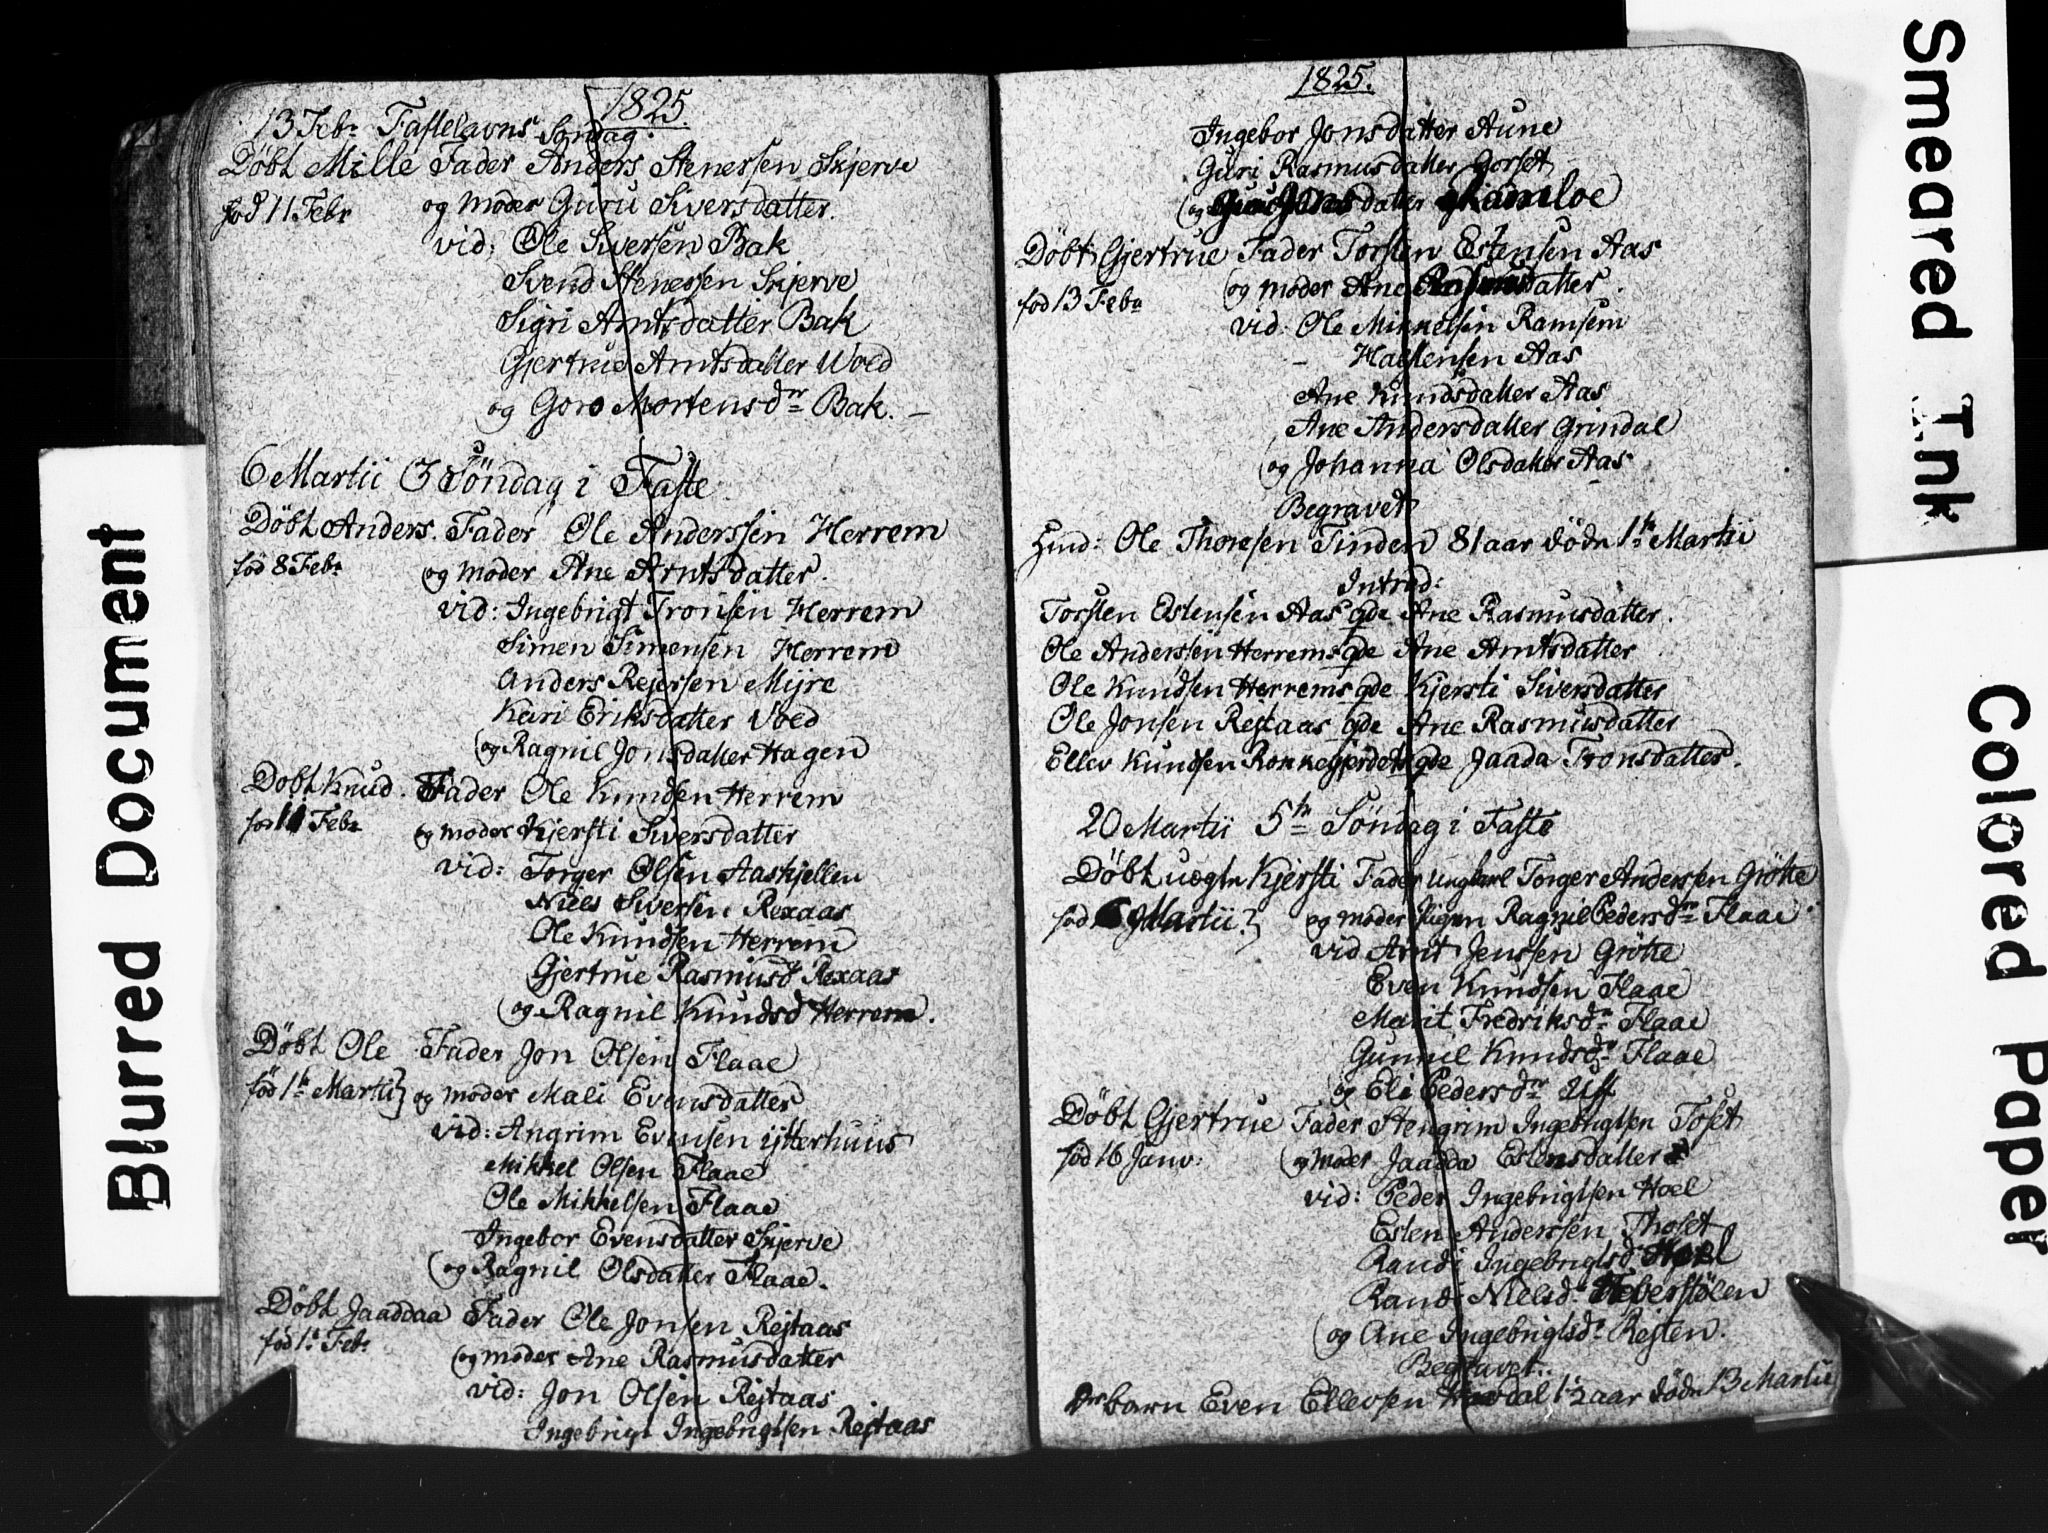 1825.
13 Febr Fastelavns Søndag.
Døbt Mille Fader Anders Stenersen Skjerve
fød 11 Febr og moder Guru Siversdatter.
vid: Ole Siversen Bak
Svend Stenersen Skjerve
Sigri Arntsdatter Bak
Gjertrue Arntsdatter Woed
og Goro Mortensdr Bak. –
6 Martii 3 Søndag i Faste
Døbt Anders. Fader Ole Anderssen Herrem
fød 8 Febr og moder Ane Arntsdatter.
vid: Ingebrigt Tronsen Herrem
Simen Simensen Herrem
Anders Rejersen Mÿre
Kari Eriksdatter Voed
og Ragnil Jonsdatter Hagen
Døbt Knud. Fader Ole Knudsen Herrem
fød 11 Febr og moder Kjersti Siversdatter
vid: Torger Olsen Aaskjellen
Niels Siversen Rexaas
Ole Knudsen Herrem
Gjertrue Rasmusd Rexaas
og Ragnil Knudsd Herrem.
Døbt Ole Fader Jon Olsen Flaae
fød 1te Martii og moder Mali Evensdatter
vid: Angrim Evensen ÿtterhuus
Mikkel Olsen Flaae
Ole Mikkelsen Flaae
Ingebor Evensdatter Skjerve
og Ragnil Olsdatter Flaae.
Døbt Jaaddaa Fader Ole Jonsen Rejtaas
fød 1te Febr og moder Ane Rasmusdatter
vid: Jon Olsen Rejtaas
Ingebrigt Ingebrigtsen Rejtaas
1825.
Ingebor Jonsdatter Aune
Guri Rasmusdatter Gorset
og datter Ramloe
Døbt Gjertrue Fader Torsten Estensen Aas
fød 13 Febr og moder Ane Rasmusdatter.
vid: Ole Mikkelsen Ramsem
– Estensen Aas
Ane Knudsdatter Aas
Ane Andersdatter Grindal
og Johanna Olsdatter Aas
Begravet
Huusd: Ole Thoresen Tinden 81 aar døde 1te Martii
Introd:
Torsten Estensen Aas qde Ane Rasmusdatter.
Ole Anderssen Herrems qde Ane Arntsdatter
Ole Knudsen Herrems qde Kjersti Siversdatter
Ole Jonsen Rejtaas qde Ane Rasmusdatter
Ellev Knudsen Ronnegjerdets qde Jaada Tronsdatter.
20 Martii 5te Søndag i Faste
Døbt uægte Kjersti Fader Ungkarl Torger Anderssen Grötte
fød 6 Martii og moder Pigen Ragnil Pedersdr Flaae
vid Arnt Jenssen Grötte
Even Knudsen Flaae
Marit Fredriksdr Flaae
Gunnil Knudsdr Flaae
og Eli Pedersdr Uff
Døbt Gjertrue Fader Stengrim Ingebrigtsen Toset
fød 16 Janv: og moder Jaadda Estensdatter
vid: Peder Ingebrigtsen Hoel
Esten Anderssen Thoset
Randi Ingebrigtsd Hoel
Randi Nielsd Heverstølen
og Ane Ingebrigtsdr Rejten.
Begravet.
Dr barn Even Ellevsen dal 1½ aar døde 13 Martii
Blurred Document
Smeared Ink
Colored Paper